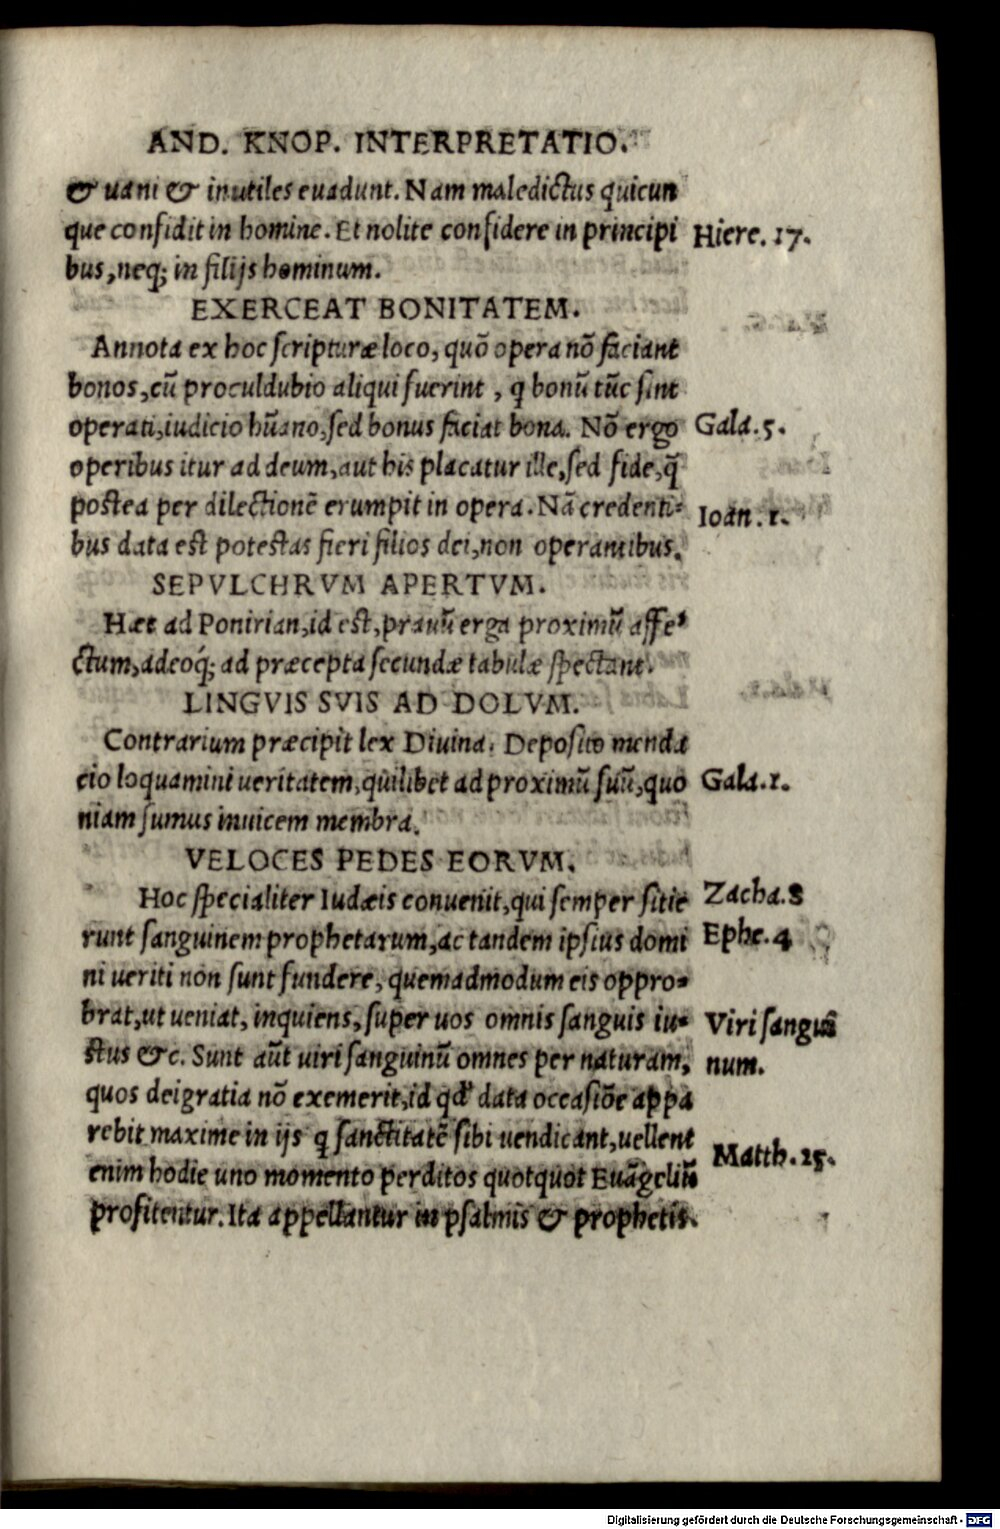 AND. KNOP. INTERPRETATIO.
& uani & inutiles euadunt. Nam maledictus quicun
que confidit in homine. Et nolite confidere in principi
Hiere. 17.
bus, neq; in filijs hominum.
EXERCEAT BONITATEM.
Annota ex hoc scripturæ loco, quō opera nō faciant
bonos, cū proculdubio aliqui fuerint, q bonū tūc sint
operati, iudicio hūano, sed bonus faciat bona. Nō ergo
Gala. 5.
operibus itur ad deum, aut his placatur ille, sed fide, q̄
postea per dilectionē erumpit in opera. Nā credenti-
Ioan. 1.
bus data est potestas fieri filios dei, non operantibus.
SEPVLCHRVM APERTVM.
Hæc ad Ponirian, id est, prauū erga proximū affe-
ctum, adeoq́; ad præcepta secundæ tabulæ spectant.
LINGVIS SVIS AD DOLVM.
Contrarium præcipit lex Diuina. Deposito menda
cio loquamini ueritatem, quilibet ad proximū suū, quo
Gala. 1.
niam sumus inuicem membra.
VELOCES PEDES EORVM.
Hoc specialiter Iudæis conuenit, qui semper sitie
Zacha. 8
runt sanguinem prophetarum, ac tandem ipsius domi
Ephe. 4
ni ueriti non sunt fundere, quemadmodum eis oppro-
brat, ut ueniat, inquiens, super uos omnis sanguis iu-
Viri sangui
stus &c. Sunt aūt uiri sanguinū omnes per naturam,
num.
quos dei gratia nō exemerit, id qd' data occasiōe appa
rebit maxime in ijs q sanctitatē sibi uendicant, uellent
Matth. 25.
enim hodie uno momento perditos quotquot Euāgeliū
profitentur. Ita appellantur in psalmis & prophetis.
Digitalisierung gefördert durch die Deutsche Forschungsgemeinschaft - DFG